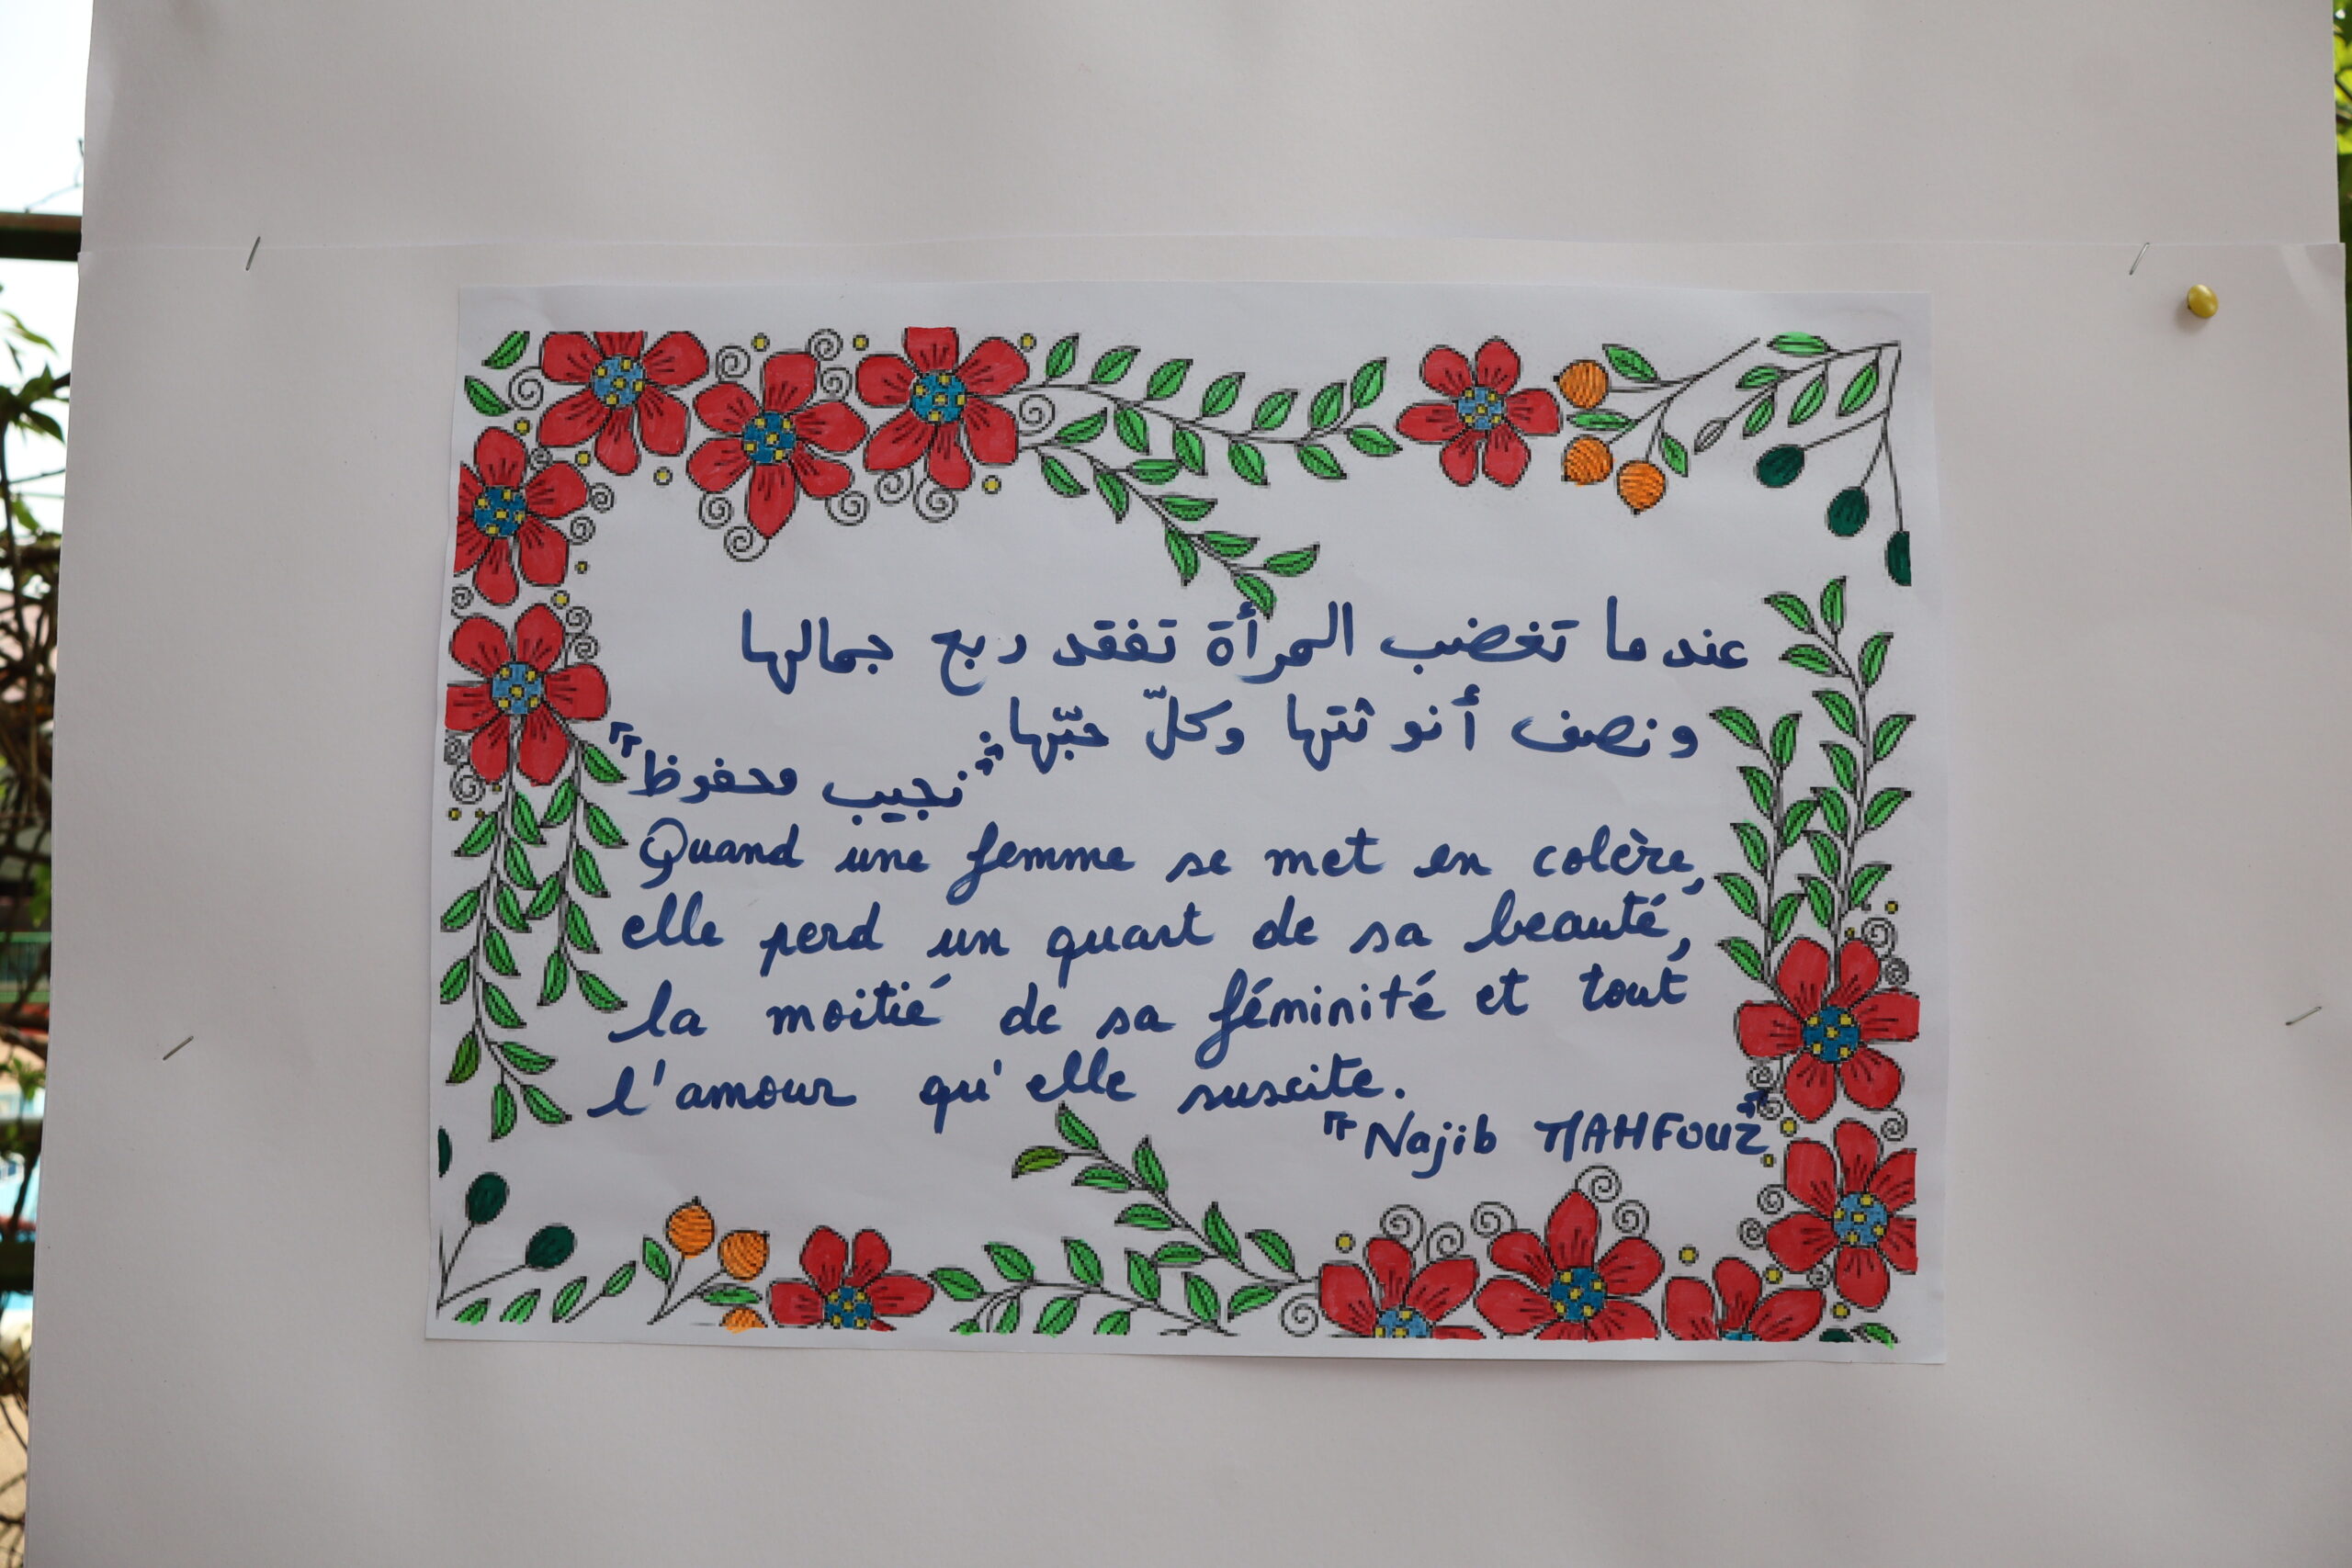 عندما تغضب المرأة تفقد ربع جمالها
ونصف أنوثتها وكلّ حبّها.
"نجيب محفوظ"
Quand une femme se met en colère,
elle perd un quart de sa beauté,
la moitié de sa féminité et tout
l'amour qu'elle suscite.
"Najib MAHFOUZ"